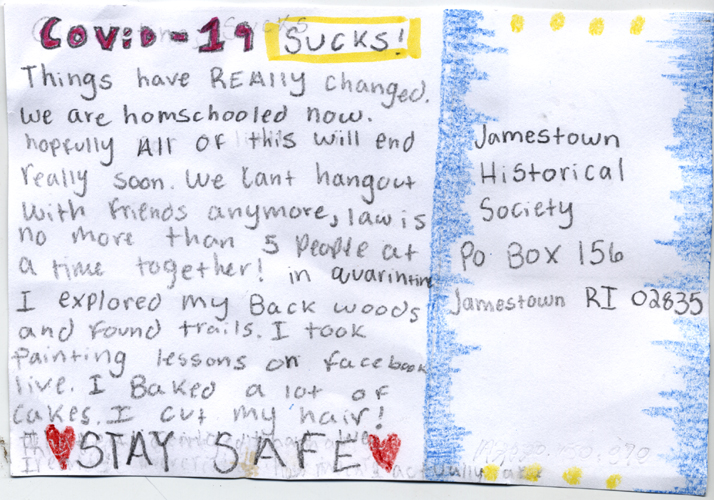 Covid-19 SUCKS!
Things have REAlly changed.
We are homschooled now.
hopfully All OF this will end
really soon. We Cant hangout
with friends anymore, law is
no more than 5 People at
a time together! in quarintine
I explored my Back woods
and found trails. I took
Painting lessons on facebook
live. I Baked a lot of
Cakes. I cut my hair!
STAY SAFE
Jamestown
Historical
Society
Po Box 156
Jamestown RI 02835